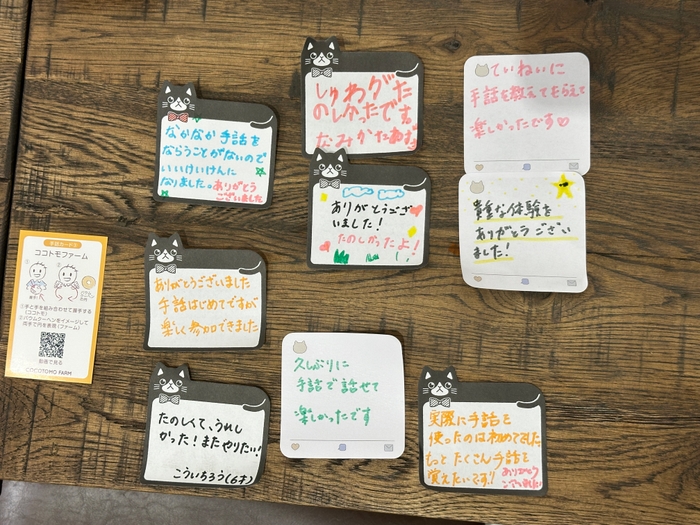 しゅわグた
のしかったです
なみかたあお
ていねいに
手話を教えてもらえて
楽しかったです♡
なかなか手話を
ならうことがないので
いいけいけんに
なりました。ありがとう
ございました
ありがとうござ
いました!
たのしかったよ!
貴重な体験を
ありがとうござい
ました!
ココトモファーム
①手と手を組み合わせて握手する
(ココトモ)
②バウムクーヘンをイメージして
両手で円を表現(ファーム)
動画で見る
COCOTOMO FARM
ありがとうございました
手話はじめてですが
楽しく参加できました
久しぶりに
手話で話せて
楽しかったです
たのしくて、うれし
かった!またやりたい!
こういちろう(6才)
実際に手話を
使ったのは初めてでした
もっとたくさん手話を
覚えたいです!!
ありがとう
ございました